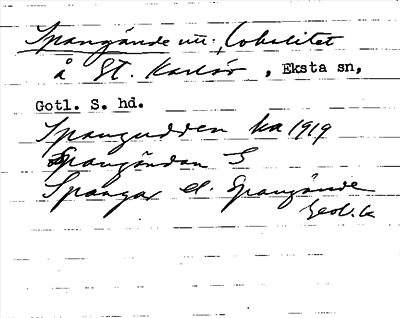 Spangände ... lokalitet
å St. Karlsö, Eksta sn,
Gotl. S. hd.
Spangudden ka 1919
Spangändan S
Spangar el. Spangände
Geol. k